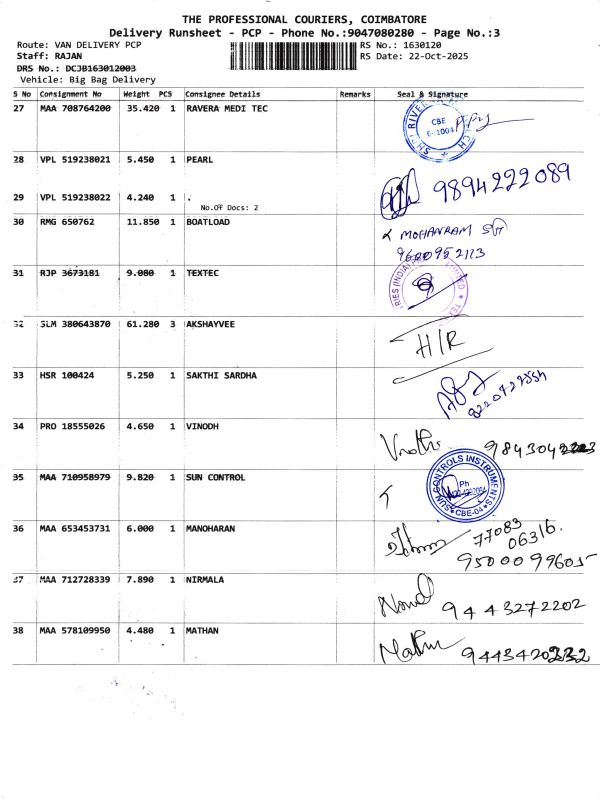 THE PROFESSIONAL COURIERS, COIMBATORE
Delivery Runsheet - PCP - Phone No.:9047080280 - Page No.:3
Route: VAN DELIVERY PCP RS No.: 1630120
Staff: RAJAN RS Date: 22-Oct-2025
DRS No.: DCJB163012003
Vehicle: Big Bag Delivery
S No Consignment No Weight PCS Consignee Details Remarks Seal & Signature
27 MAA 708764200 35.420 1 RAVERA MEDI TEC
CBE
28 VPL 519238021 5.450 1 PEARL
9894222089
29 VPL 519238022 4.240 1 .
No.Of Docs: 2
30 RMG 650762 11.850 1 BOATLOAD
MOHANRAM
31 RJP 3673181 9.080 1 TEXTEC
32 SLM 380643870 61.280 3 AKSHAYVEE
H/R
33 HSR 100424 5.250 1 SAKTHI SARDHA
34 PRO 18555026 4.650 1 VINODH
35 MAA 710958979 9.820 1 SUN CONTROL
SUN CONTROLS INSTRUMENTS
Ph
CBE-04
36 MAA 653453731 6.000 1 MANOHARAN
77083
06316.
9500099605
37 MAA 712728339 7.890 1 NIRMALA
9443272202
38 MAA 578109950 4.480 1 MATHAN